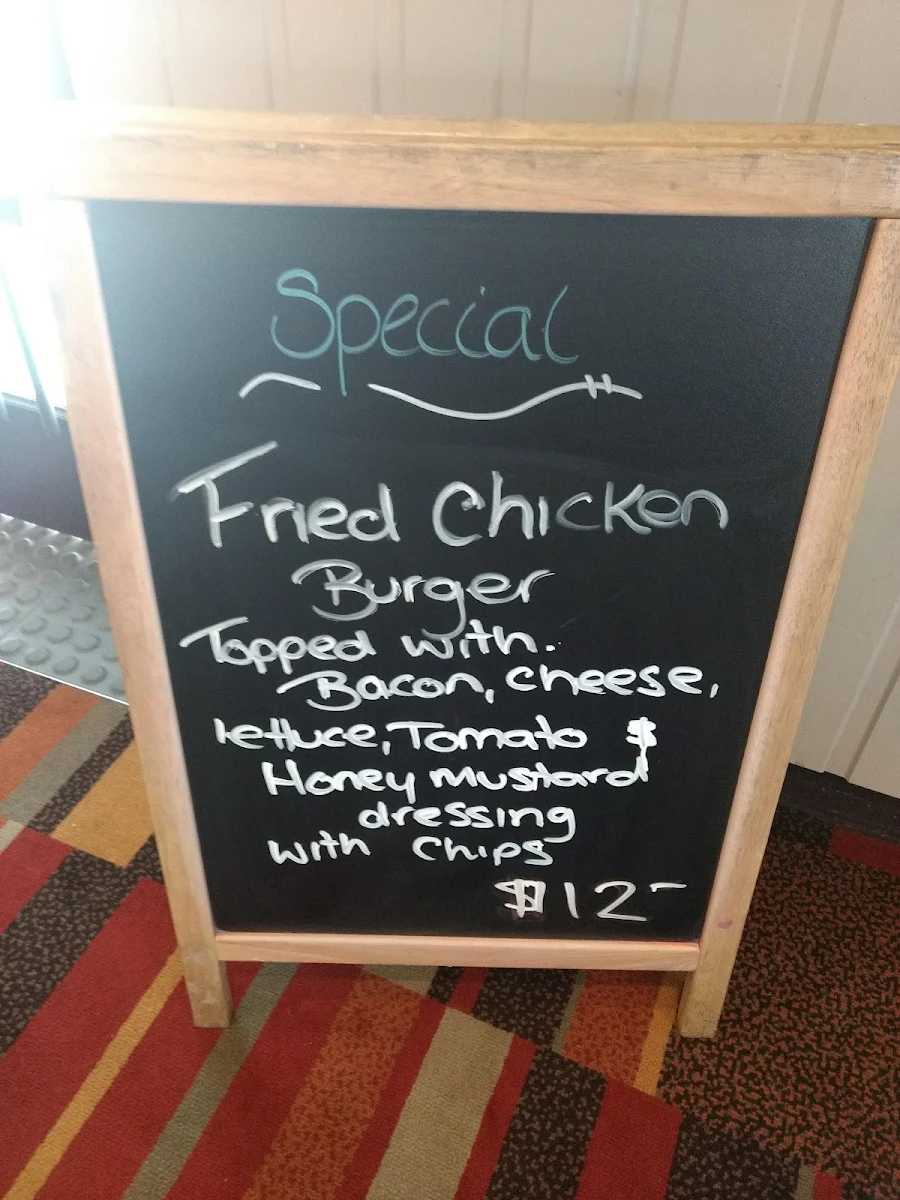 Special
Fried Chicken
Burger
Topped with.
Bacon, cheese,
lettuce, Tomato $
Honey mustard
dressing
with Chips
$12-